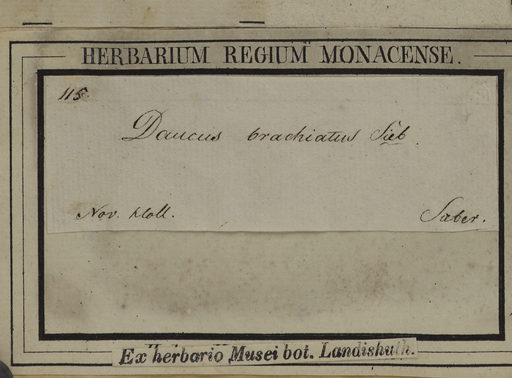 HERBARIUM REGIUM MONACENSE.
115.
Daucus brachiatus Sieb.
Nov. Holl.
Saber.
Ex herbario Musei bot. Landishuth.